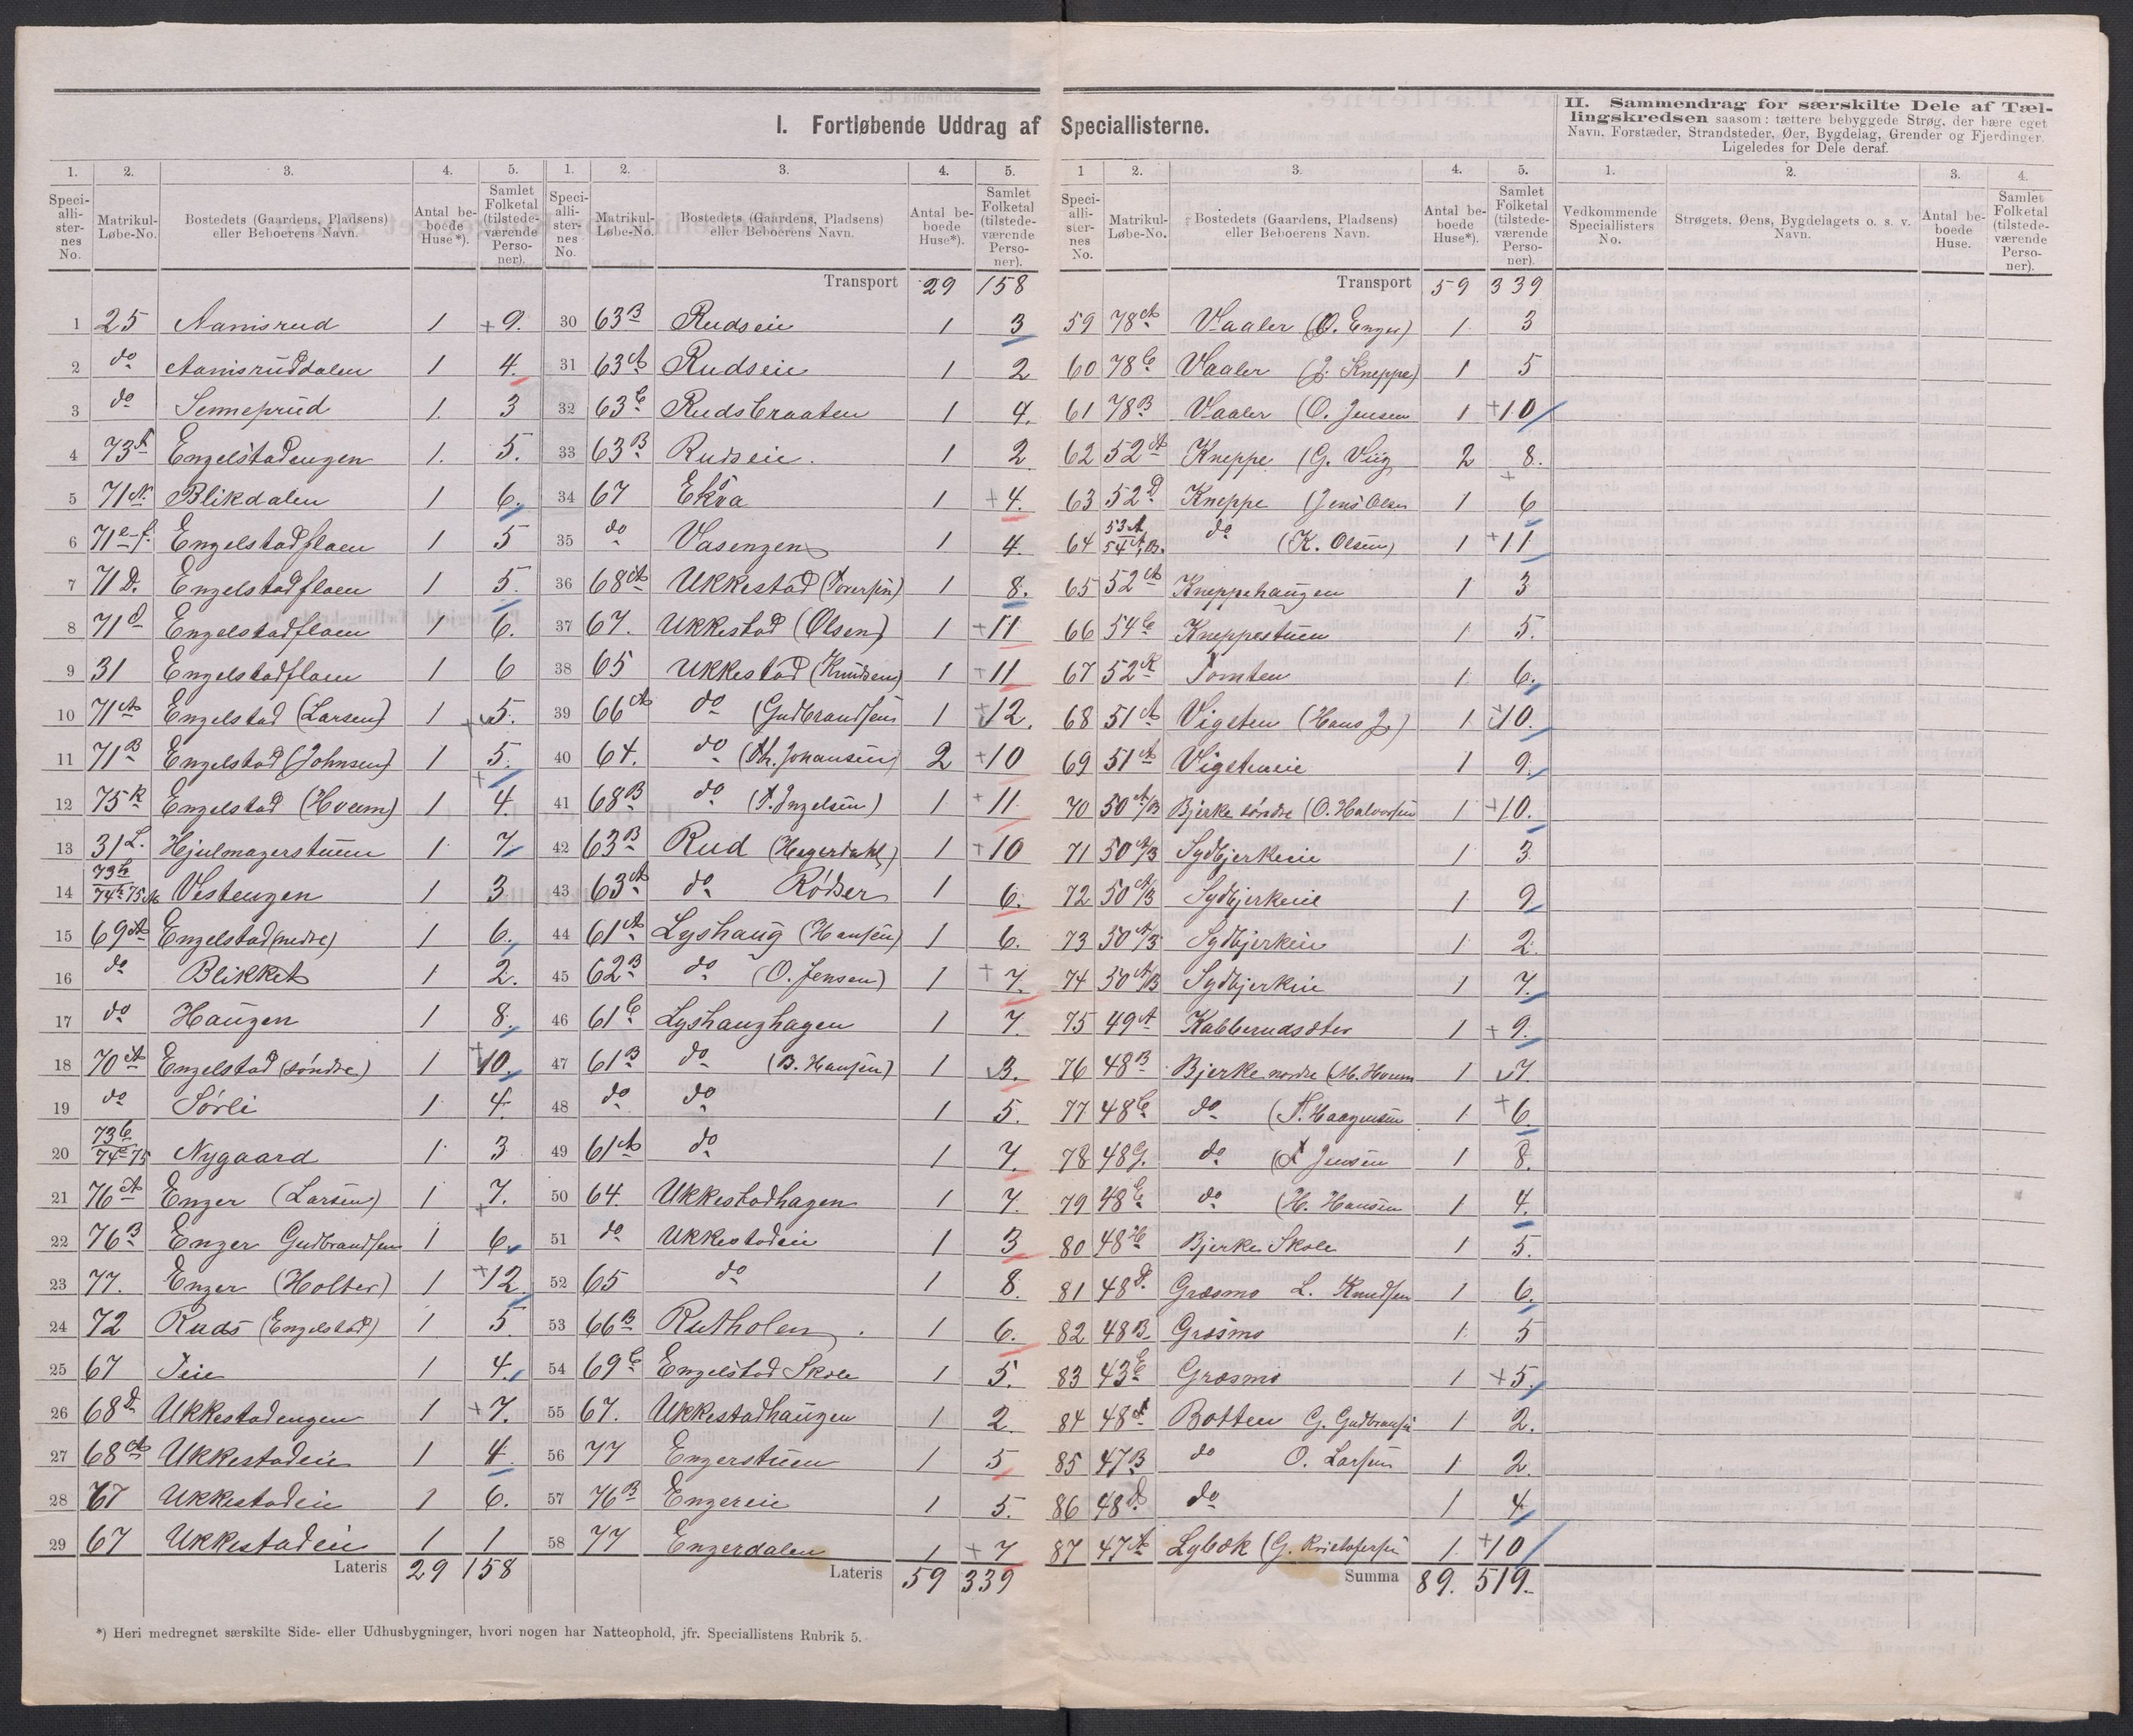 I. Fortløbende Uddrag af Speciallisterne.
II. Sammendrag for særskilte Dele af Tællingskredsen saasom: tættere bebyggede Strøg, der bære eget Navn, Forstæder, Strandsteder, Øer, Bygdelag, Grender og Fjerdinger. Ligeledes for Dele deraf.
1. 2. 3. 4. 5.
Speciallisternes No. Matrikul-Løbe-No. Bostedets (Gaardens, Pladsens) eller Beboerens Navn. Antal beboede Huse*). Samlet Folketal (tilstedeværende Personer).
1 25 Aamisrud 1 + 9.
2 do Aamisruddalen 1 4.
3 do Senneprud 1. 3
4 73 A Engelstadengen 1. 5.
5 71 N. Blikdalen 1 6.
6 71 e-f. Engelstadflaen 1 5
7 71 D. Engelstadflaen 1 5.
8 71 d Engelstadflaen 1 6.
9 31 Engelstadflaen 1 6
10 71 A Engelstad (Larsen) 1 + 5.
11 71 B Engelstad (Johnsen) 1 5.
12 75 K Engelstad (Hvam) 1 + 4.
13 31 L. Hjulmagerstuen 1 7.
14 73 h 74 h 75 M Vestengen 1 3
15 69 A Engelstad (nedre) 1 6.
16 do Blikket 1 2.
17 do Haugen 1 8.
18 70 A Engelstad (søndre) 1 + 10.
19 do Sørli 1 4.
20 73 C 74 e 75 Nygaard 1 3
21 76 A Enger (Larsen) 1 7.
22 76 B Enger Gudbrandsen 1 + 6.
23 77. Enger (Holter) 1 + 12
24 72 Ruds (Engelstad) 1 5
25 67 Teie 1 4.
26 68 D. Ukkestadengen 1 + 7.
27 68 A Ukkestadeie 1 4.
28 67 Ukkestadeie 1 6.
29 67 Ukkestadeie 1 1
Lateris 29 158
1. 2. 3. 4. 5.
Speciallisternes No. Matrikul-Løbe-No. Bostedets (Gaardens, Pladsens) eller Beboerens Navn. Antal beboede Huse*). Samlet Folketal (tilstedeværende Personer).
Transport 29 158
30 63 B Rudseie 1 3
31 63 A Rudseie 1 2
32 63 C Rudsbraaten 1 4.
33 63 B Rudseie. 1 2
34 67 Ekra 1 + 4.
35 do Vasengen 1 4.
36 68 A Ukkestad (Iversen) 1 8.
37 67. Ukkestad (Olsen) 1 + 11
38 65 Ukkestad (Knudsen) 1 + 11
39 66 A do (Gudbrandsen 1 + 12.
40 64. do (Th. Johansen) 2 + 10
41 68 B do (A. Ingelsen) 1 + 11
42 63 B Rud (Hegerdahl) 1 + 10
43 63 A do Rødser 1 6.
44 61 A Lyshaug (Hansen) 1 6.
45 62 B do (O. Jensen) 1 + 7.
46 61 C Lyshaughagen 1 7
47 61 B do (B. Hansen) 1 3.
48 do do 1 5.
49 61 A do 1 7.
50 64. Ukkestadhagen 1 7.
51 do Ukkestadeie 1 3
52 65 do 1 8.
53 66 B Rutholen 1 6.
54 69 C Engelstad Skole 1 5.
55 67. Ukkestadhaugen 1 2.
56 77 Engerstuen 1 5
57 76 B Engereie 1 5.
58 77 Engerdalen 1 + 7
Lateris 59 339
1 2. 3. 4. 5.
Speciallisternes No. Matrikul-Løbe-No. Bostedets (Gaardens, Pladsens) eller Beboerens Navn. Antal beboede Huse*). Samlet Folketal (tilstedeværende Personer).
Transport 59 339
59 78 A Vaaler (O. Enger) 1 3
60 78 C Vaaler (J. Kneppe) 1 5
61 78 B Vaaler (O. Jensen 1 + 10
62 52 A Kneppe (G. Viig 2 8.
63 52 D Kneppe (Jens Olsen 1 + 6
64 53 A 54 A, B. do (K. Olsen) 1 + 11
65 52 A Kneppehaugen 1 3
66 54 C Kneppestuen 1 5.
67 52 K Tomten 1 6.
68 51 A Vigsten (Hans J.) 1 + 10.
69 51 A Vigsteneie 1 9.
70 50 A/B Bjerke søndre (O. Halvorsen 1 + 10.
71 50 A/B Sydbjerkeie 1 3
72 50 A/B Sydbjerkeie 1 9
73 50 A/B Sydbjerkeie 1 2.
74 50 A/B Sydbjerkeie 1 7.
75 49 A Kabberudsæter 1 + 9.
76 48 B Bjerke nordre (M. Hvam 1 7.
77 48 C do (N. Haagensen 1 + 6.
78 48 G. do (A Jensen 1 8.
79 48 E do (H. Hansen 1 4.
80 48 H Bjerke Skole 1 5.
81 48 D. Græsmo L. Knudsen 1 6.
82 48 B. Græsmo 1 5
83 43 E Græsmo 1 + 5.
84 48 A Botten G. Gudbransen 1 2.
85 47 B do O. Larsen 1 2.
86 48 D do 1 4
87 47 A Lybæk (G. Kristofersen 1. + 10
Summa 89. 519.
1. 2. 3. 4.
Vedkommende Speciallisters No. Strøgets, Øens, Bygdelagets o. s. v. Navn. Antal beboede Huse. Samlet Folketal (tilstedeværende Personer).
*) Heri medregnet særskilte Side- eller Udhusbygninger, hvori nogen har Natteophold, jfr. Speciallistens Rubrik 5.